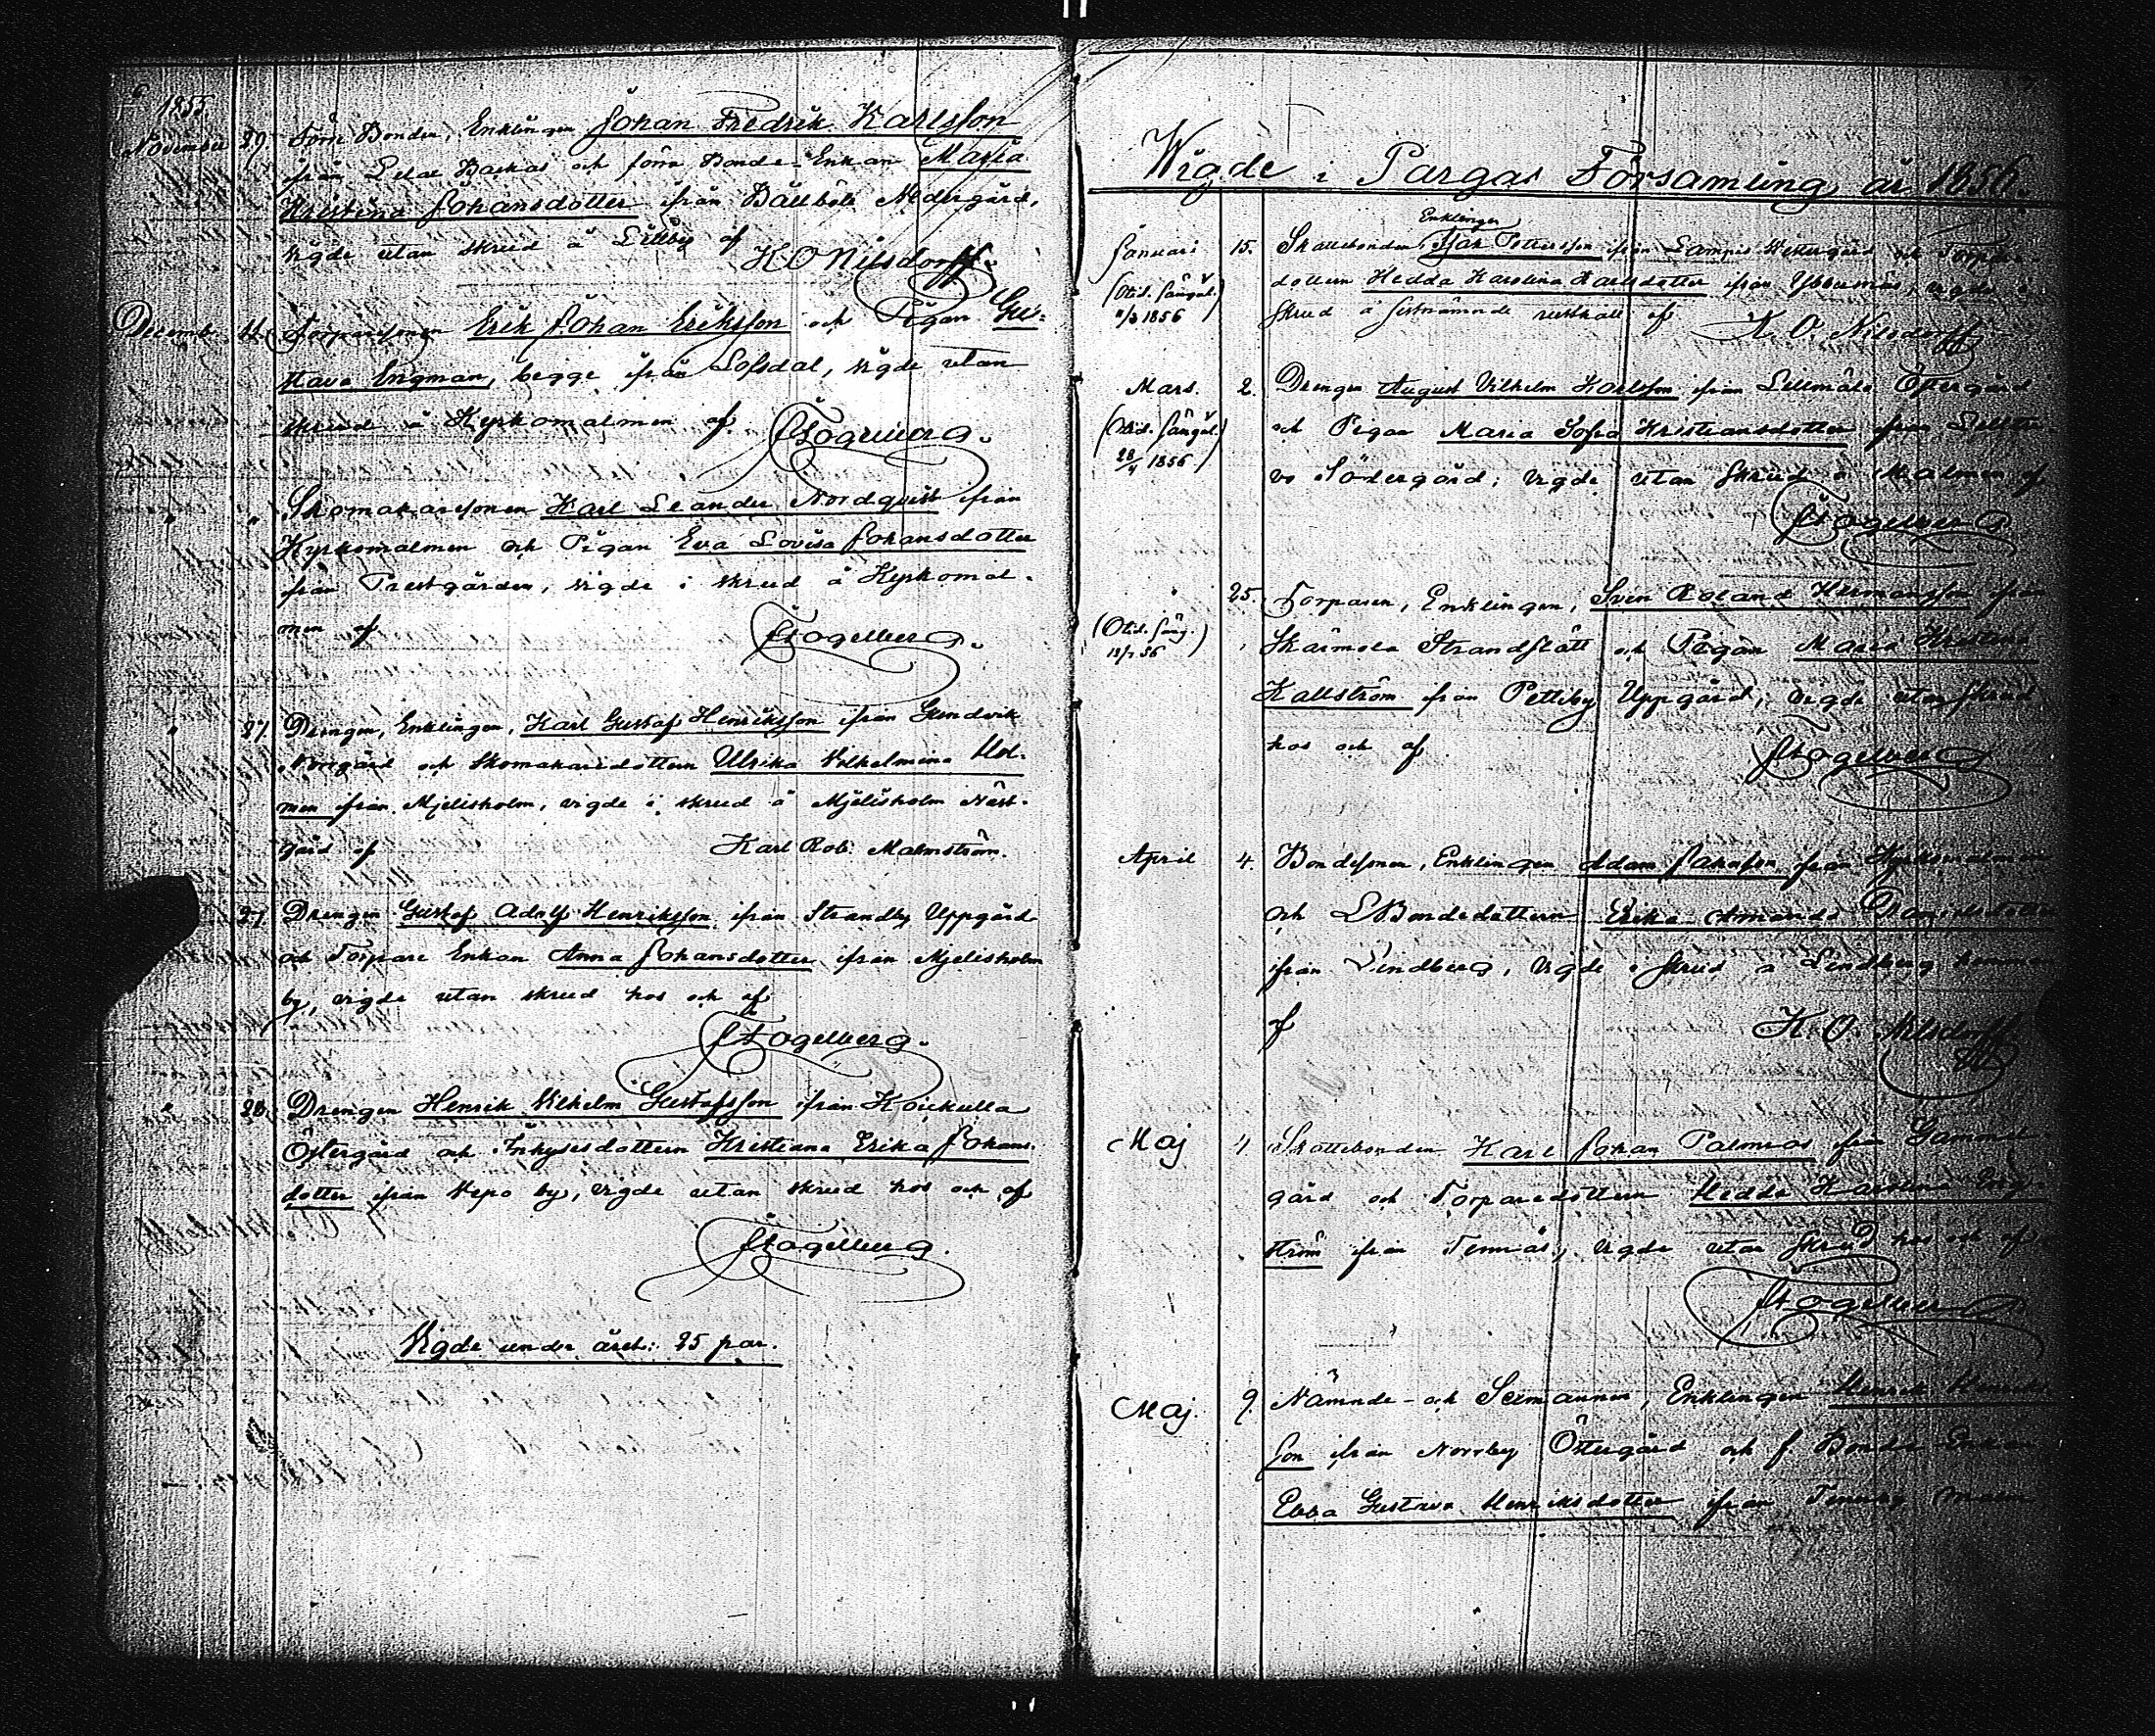 6
1855
November 29. Förr Bonden, Enklingen Johan Fredrik Karlsson
ifrån Backas och förra Bonde-Enkan Maria
Kristina Johansdotter ifrån Bällböle Nedergård,
vigde utan skrud å Lillby af
K O Nilsdorff.
Decemb. Torparesonen Erik Johan Eriksson och Pigan Gus-
stava Engman, begge ifrån Lofsdal, vigde utan
skrud å Kyrkomalmen af
FFogelberg.
" " Skomakaresonen Karl Leander Nordqvist ifrån
Kyrkomalmen och Pigan Eva Lovisa Johansdotter
från Prestgården, vigde i skrud å Kyrkomal-
men af
FFogelberg.
" 27. Drengen, Enklingen, Karl Gustaf Henriksson ifrån Gundvik
Norrgård och Skomakaredottern Ulrika Vilhelmina Hol-
men ifrån Mjelisholm, vigde i skrud å Mjelisholm Näst-
gård af Karl Rob. Malmström.
27. Drengen Gustaf Adolf Henriksson ifrån Strandby Uppgård
och Torpare Enkan Anna Johansdotter ifrån Mjelisholm
by, vigde utan skrud hos och af
FFogelberg.
" 28. Drengen Henrik Vilhelm Gustafsson ifrån Koickulla
Östergård och Inhysesdottern Kristiana Erika Johans-
dotter ifrån Vepo by, vigde utan skrud hos och af
FFogelberg.
Vigde under året: 25 par.
Wigde i Pargas Församling år 1856.
Enklingen
Januari 15. Skattebonden Isak Petersson från Lampis Westergård och Torpare-
dottern Hedda Karolina Karlsdotter ifrån Ybbernäs, vigde i
1856 Skrud å sistnämnde rusthåll af
K. O. Nilsdorff
Mars. 2. Drengen August Vilhelm Karlsson ifrån Lillmälö Östergård
och Pigan Maria Sofia Kristiansdotter ifrån
28/4 1856 vo Södergård; vigde utan Skrud å Malmen af
FFogelberg
25. Torparen, Enklingen, Sven Roland Hermansson ifrån
Skärmola Strandslätt och Pigan Maria Kristina
Kallström ifrån Petteby Uppgård, vigde utan Skrud
hos och af
FFogelberg
April 4. Bondesonen, Enklingen Adam från Kyrkomalmen
och Bondedottern Erika Amanda
ifrån Lindberg, vigde i Skrud å Lindberg hemman
af K. O. Nilsdorff
Maj 4. Skattebonden Karl Johan Palmros från Gammel-
gård och Torparedottern Hedda Karolina
ström ifrån Tennäs, vigde utan Skrud hos och af
FFogelberg
Maj. 9. Nämnde- och Sexmannen, Enklingen Henrik
son ifrån Norrby Östergård och f. Bonde
Ebba Gustava Henriksdotter ifrån